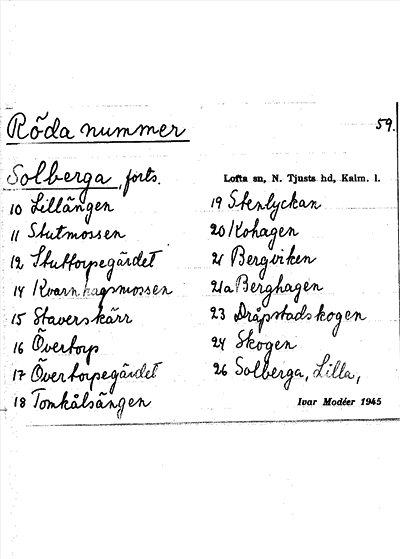 Röda nummer
59.
Solberga, forts.
Lofta sn, N. Tjusts hd, Kalm. l.
10 Lillängen
11 Stutmossen
12 Stuttorpegärdet
14 Kvarnhagsmossen
15 Staverskärr
16 Övertorp
17 Övertorpegärdet
18 Tomkålsängen
19 Stenlyckan
20 Kohagen
21 Bergviken
21a Berghagen
23 Dråpstadskogen
24 Skogen
26 Solberga, Lilla,
Ivar Modéer 1945